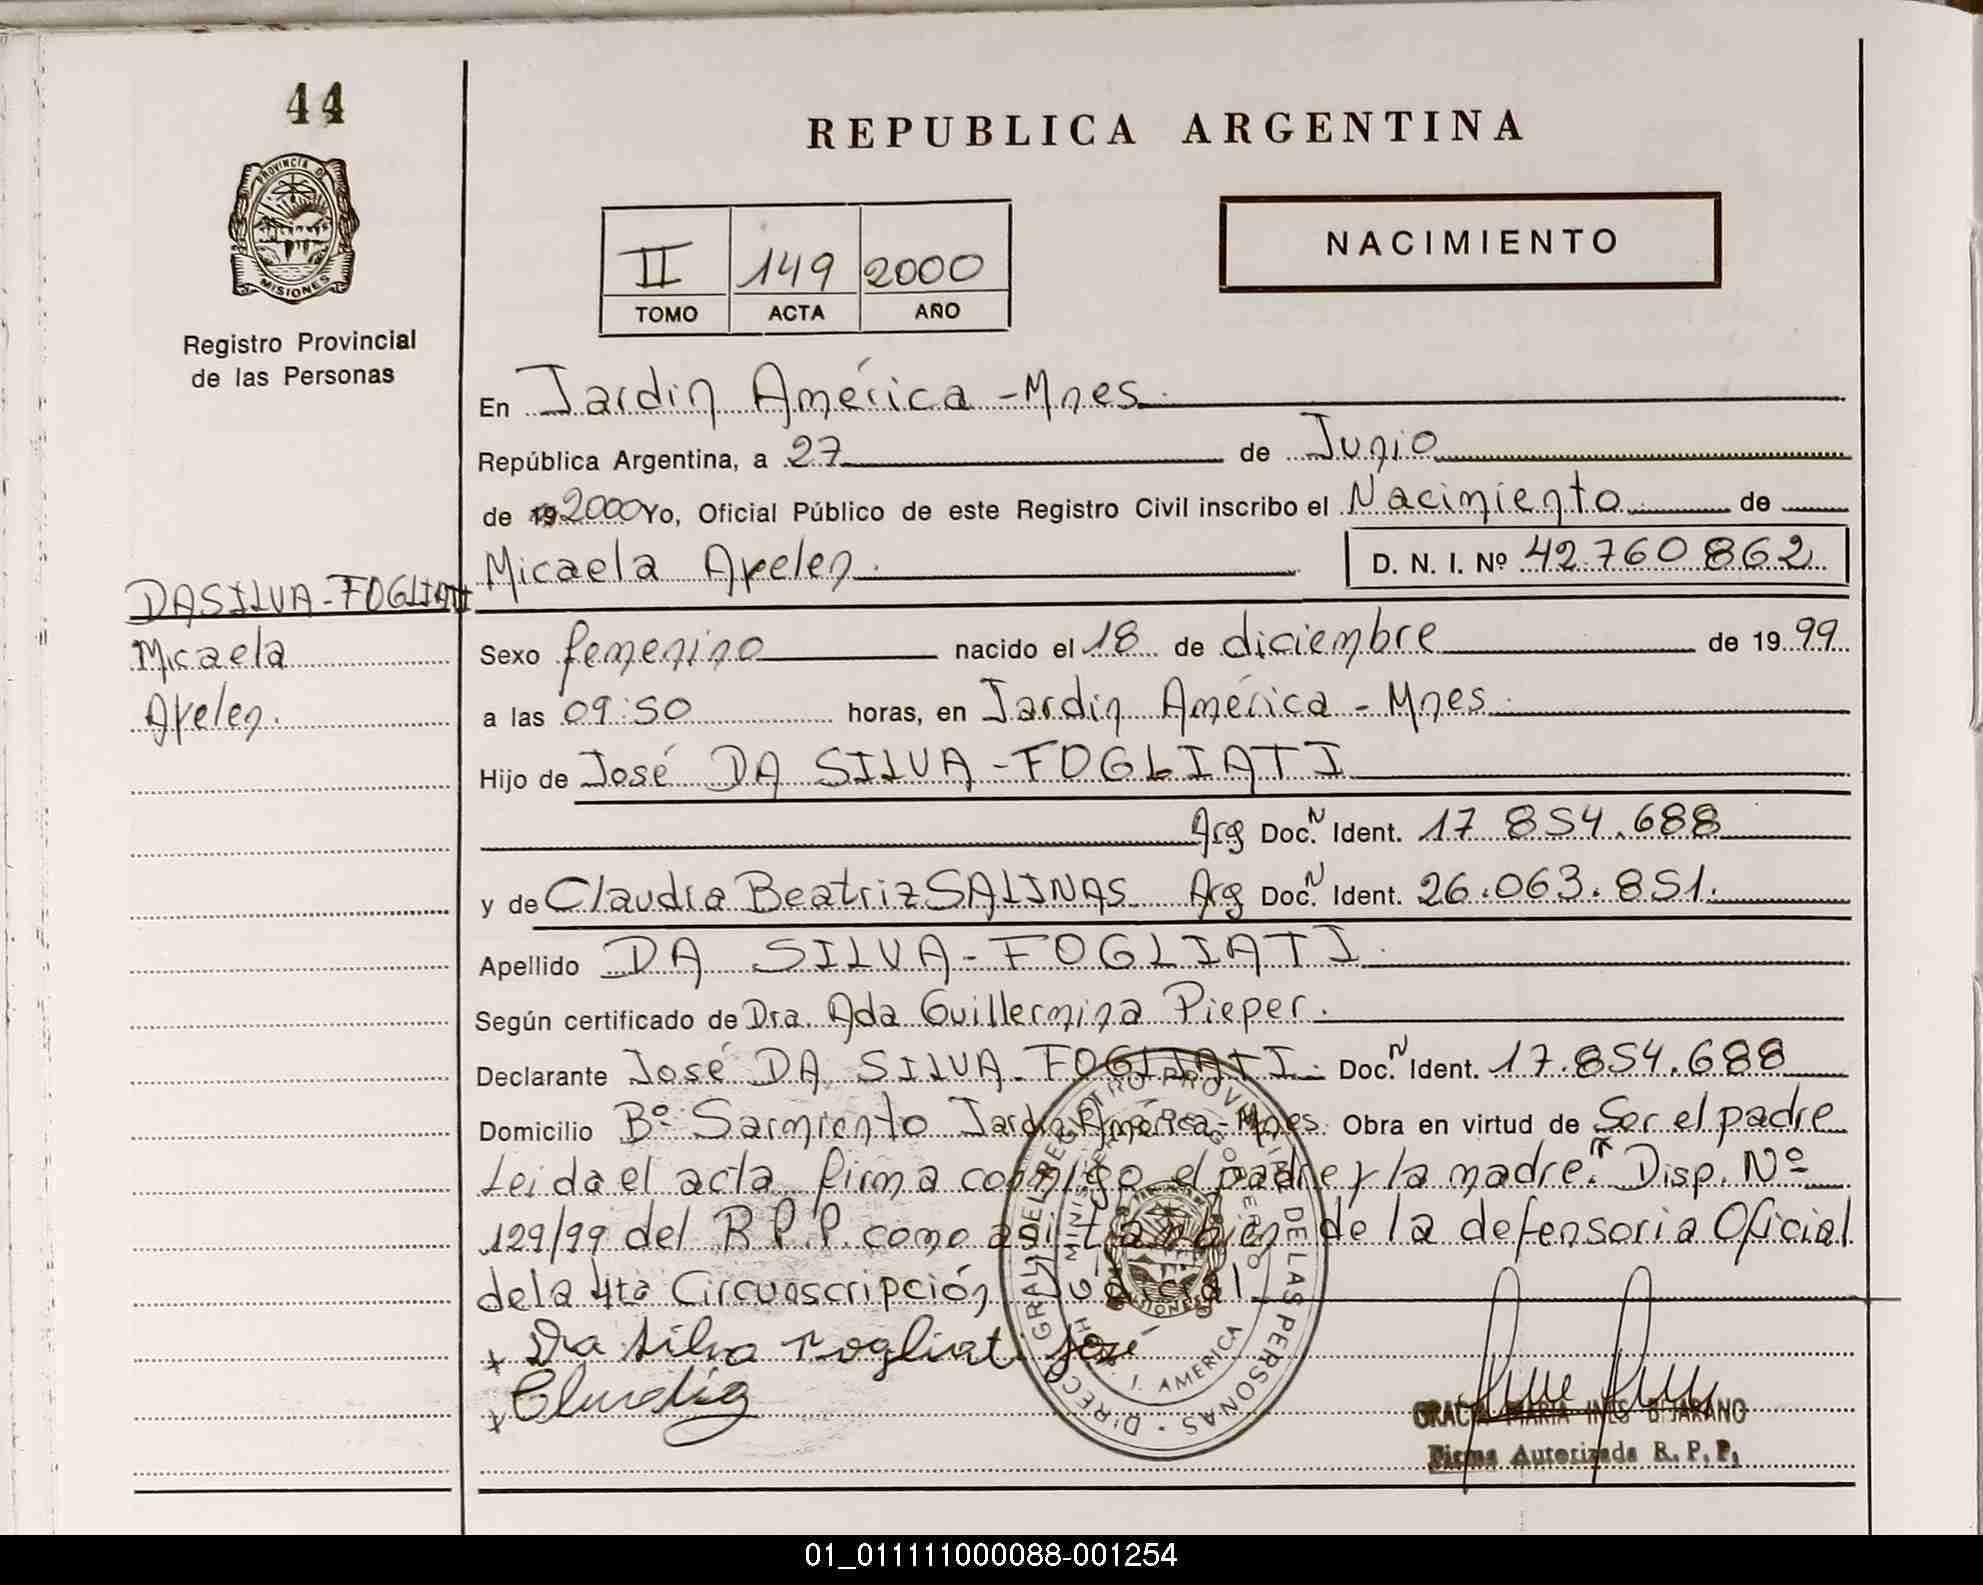 44
REPUBLICA ARGENTINA
PROVINCIA DE
MISIONES
Registro Provincial
de las Personas
NACIMIENTO
II 149 2000
TOMO ACTA AÑO
En Jardin América - Mnes.
República Argentina, a 27 de Junio
de 19 2000 Yo, Oficial Público de este Registro Civil inscribo el Nacimiento de
Micaela Ayelen. D. N. I. Nº 42.760.862
DA SILVA-FOGLIATI
Micaela
Ayelen.
Sexo femenino nacido el 18 de diciembre de 19 99
a las 09:50 horas, en Jardin América - Mnes.
Hijo de José DA SILVA-FOGLIATI
Arg Doc. N Ident. 17.854.688
y de Claudia Beatriz SALINAS Arg Doc. N Ident. 26.063.851.
Apellido DA SILVA-FOGLIATI.
Según certificado de Dra. Ada Guillermina Pieper.
Declarante José DA SILVA-FOGLIATI. Doc. N Ident. 17.854.688
Domicilio Bº Sarmiento Jardin América - Mnes. Obra en virtud de Ser el padre
Leida el acta firma conmigo el padre y la madre. Disp. Nº
129/99 del R.P.P. como asi tambien de la defensoria Oficial
de la 4ta Circunscripción Judicial
Da Silva Fogliati José
Claudia
DIRECC. GRAL. DEL REGISTRO PROVINCIAL DE LAS PERSONAS
MINISTERIO DE GOBIERNO
J. AMERICA
MISIONES
GRACIA MARIA INES BEJARANO
Firma Autorizada R. P. P.
01_011111000088-001254